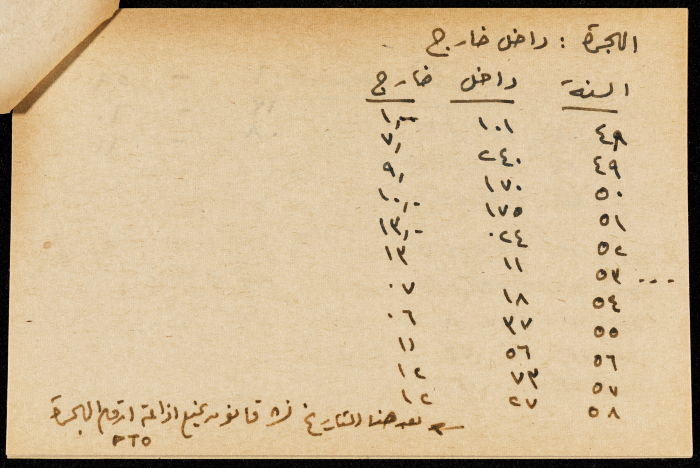 الهجرة : داخل خارج
السنة داخل خارج
٤٨ ١٠١
٤٩ ٢٤٠ ٧١
٥٠ ١٧٠ ٩١
٥١ ١٧٥ ١٠١٠
٥٢ ٠٢٤ ١٣١٠
٥٣ ١١ ١٣
٥٤ ١٨ ٠٧
٥٥ ٣٧ ٠٦
٥٦ ٥٦ ١١
٥٧ ٧٣ ١٢
٥٨ ٢٧ ١٢
بعد هذا التاريخ قانون يمنع اذاعة ارقام الهجرة
PTO